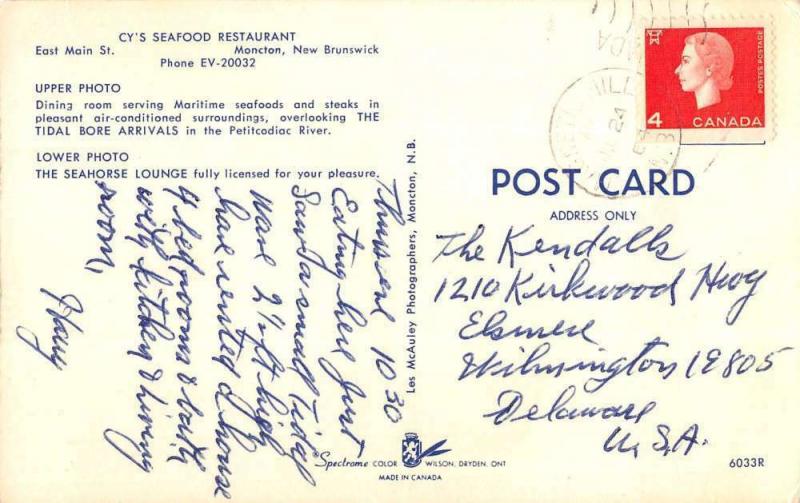 CY'S SEAFOOD RESTAURANT
East Main St. Moncton, New Brunswick
Phone EV-20032
UPPER PHOTO
Dining room serving Maritime seafoods and steaks in
pleasant air-conditioned surroundings, overlooking THE
TIDAL BORE ARRIVALS in the Petitcodiac River.
LOWER PHOTO
THE SEAHORSE LOUNGE fully licensed for your pleasure.
Thurs eve 10 30
Eating here just
Saw a small Tidal
Wave 2 1/2 ft high
have rented a house
4 bedrooms & bath,
with kitchen & living
room,
Harry
Les McAuley Photographers, Moncton, N.B.
Spectrome COLOR WILSON, DRYDEN, ONT
MADE IN CANADA
4 CANADA
POSTES POSTAGE
POST CARD
ADDRESS ONLY
The Kendalls
1210 Kirkwood Hwy
Elsmere
Wilmington 19805
Delaware
U.S.A.
6033R